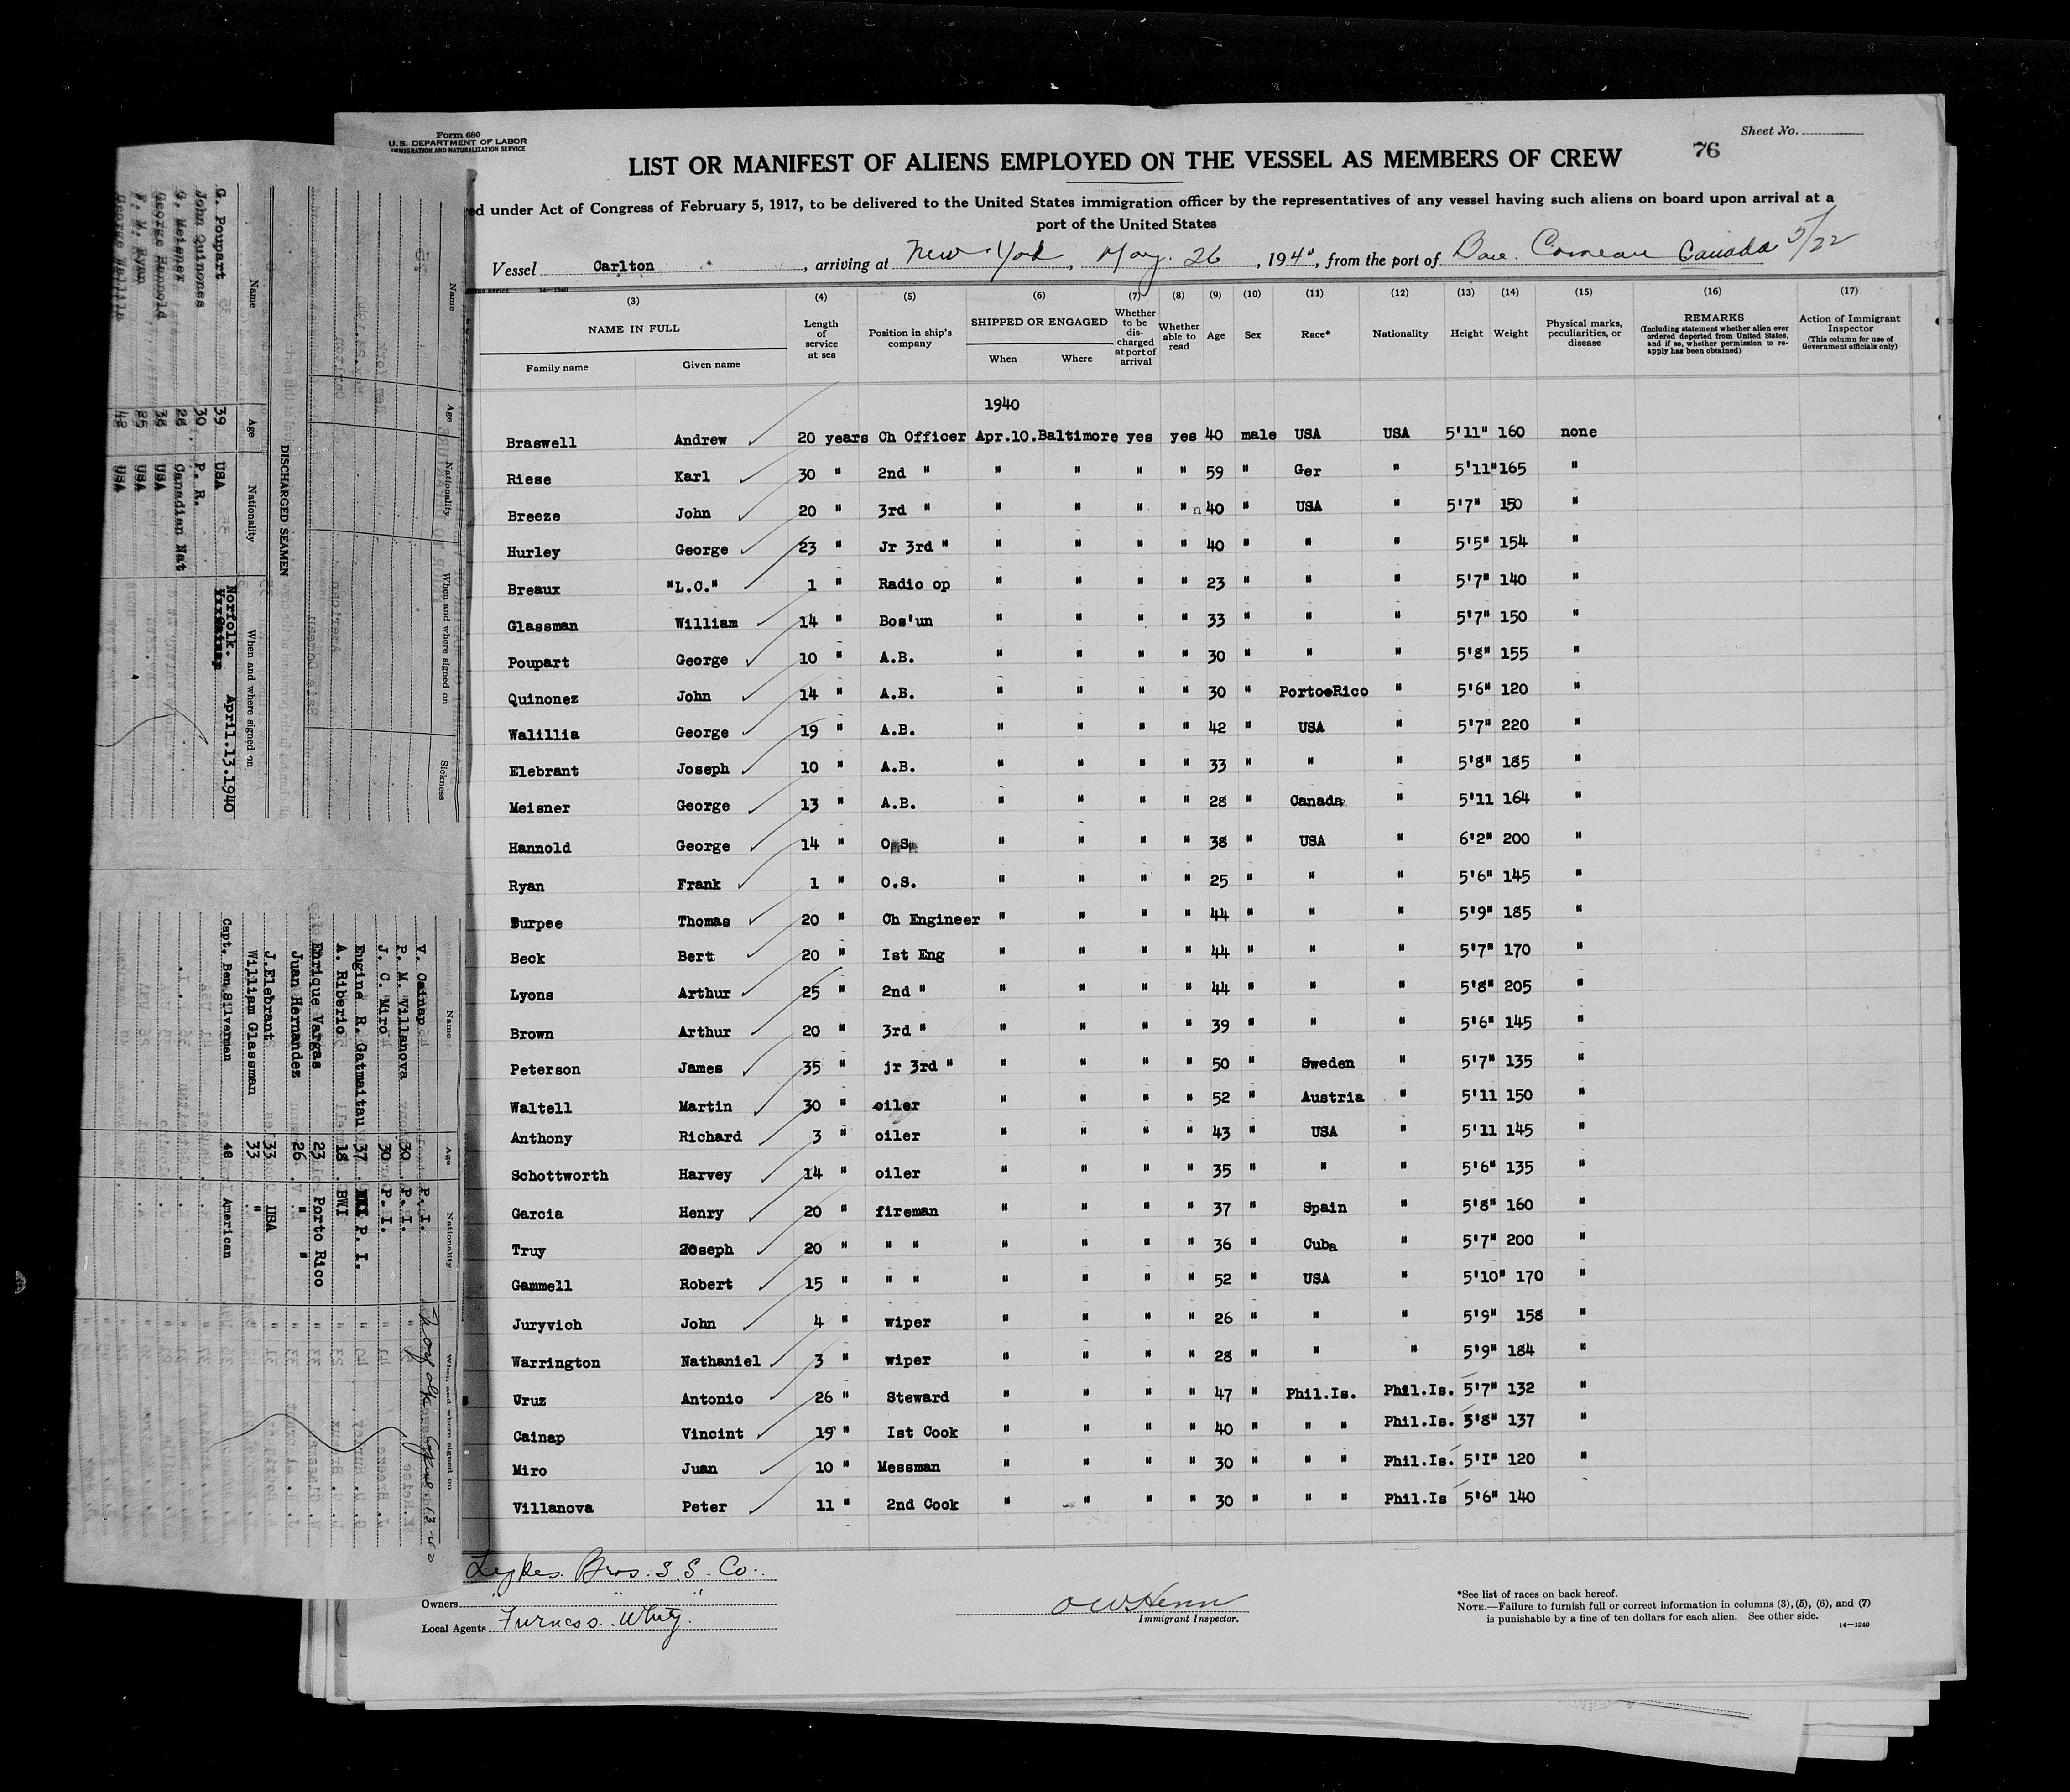 Form 680
U.S. DEPARTMENT OF LABOR
IMMIGRATION AND NATURALIZATION SERVICE
Sheet No.
76
LIST OR MANIFEST OF ALIENS EMPLOYED ON THE VESSEL AS MEMBERS OF CREW
ed under Act of Congress of February 5, 1917, to be delivered to the United States immigration officer by the representatives of any vessel having such aliens on board upon arrival at a
port of the United States
Vessel Carlton, arriving at New York, May. 26, 1940, from the port of Comeau Canada 5/22
(3) (4) (5) (6) (7) (8) (9) (10) (11) (12) (13) (14) (15) (16) (17)
NAME IN FULL Family name Given name
Length of service at sea
Position in ship's company
SHIPPED OR ENGAGED When Where
Whether to be discharged at port of arrival
Whether able to read
Age Sex Race* Nationality Height Weight
Physical marks, peculiarities, or disease
REMARKS (Including statement whether alien ever ordered deported from United States, and if so, whether permission to reapply has been obtained)
Action of Immigrant Inspector (This column for use of Government officials only)
1940
Braswell Andrew 20 years Ch Officer Apr.10.Baltimore yes yes 40 male USA USA 5'11" 160 none
Riese Karl 30 " 2nd " " " " " 59 " Ger " 5'11" 165 "
Breeze John 20 " 3rd " " " " " n 40 " USA " 5'7" 150 "
Hurley George 23 " Jr 3rd " " " " " 40 " " " 5'5" 154 "
Breaux "L.C." 1 " Radio op " " " " 23 " " " 5'7" 140 "
Glassman William 14 " Bos'un " " " " 33 " " " 5'7" 150 "
Poupart George 10 " A.B. " " " " 30 " " " 5'8" 155 "
Quinonez John 14 " A.B. " " " " 30 " PortoeRico " 5'6" 120 "
Walillia George 19 " A.B. " " " " 42 " USA " 5'7" 220 "
Elebrant Joseph 10 " A.B. " " " " 33 " " " 5'8" 185 "
Meisner George 13 " A.B. " " " " 28 " Canada " 5'11 164 "
Hannold George 14 " O.S. " " " " 38 " USA " 6'2" 200 "
Ryan Frank 1 " O.S. " " " " 25 " " " 5'6" 145 "
Burpee Thomas 20 " Ch Engineer " " " " 44 " " " 5'9" 185 "
Beck Bert 20 " Ist Eng " " " " 44 " " " 5'7" 170 "
Lyons Arthur 25 " 2nd " " " " " 44 " " " 5'8" 205 "
Brown Arthur 20 " 3rd " " " " " 39 " " " 5'6" 145 "
Peterson James 35 " jr 3rd " " " " " 50 " Sweden " 5'7" 135 "
Waltell Martin 30 " oiler " " " " 52 " Austria " 5'11 150 "
Anthony Richard 3 " oiler " " " " 43 " USA " 5'11 145 "
Schottworth Harvey 14 " oiler " " " " 35 " " " 5'6" 135 "
Garcia Henry 20 " fireman " " " " 37 " Spain " 5'8" 160 "
Truy Joseph 20 " " " " " " " 36 " Cuba " 5'7" 200 "
Gammell Robert 15 " " " " " " " 52 " USA " 5'10" 170 "
Juryvich John 4 " wiper " " " " 26 " " " 5'9" 158 "
Warrington Nathaniel 3 " wiper " " " " 28 " " " 5'9" 184 "
Cruz Antonio 26 " Steward " " " " 47 " Phil.Is. Phil.Is. 5'7" 132 "
Cainap Vincint 19 " Ist Cook " " " " 40 " " " Phil.Is. 5'8" 137 "
Miro Juan 10 " Messman " " " " 30 " " " Phil.Is. 5'I" 120 "
Villanova Peter 11 " 2nd Cook " " " " 30 " " " Phil.Is 5'6" 140
Lykes Bros. S.S. Co.
Owners " " "
Local Agents Furness. Withy.
Immigrant Inspector.
*See list of races on back hereof.
NOTE.—Failure to furnish full or correct information in columns (3), (5), (6), and (7)
is punishable by a fine of ten dollars for each alien. See other side.
14—1240
Name Age Nationality When and where signed on Sickness
DISCHARGED SEAMEN
Name Age Nationality When and where signed on
G. Poupart 39 USA Norfolk. April.13.1940
John Quinones 30 P. R.
G. Meisner 28 Canadian Nat
George Hannold 38 USA
F. M. Ryan 25 USA
George Wallilin 42 USA
Name Age Nationality When and where signed on
V. Cainap P. I. Norfolk April 13-40
P. M. Villanova 30 P. I.
J. C. Miro 30 P. I.
Eugine R. Gatmaitau 37 P. I.
A. Riberio 18 BWI
Enrique Vargas 23 Porto Rico
Juan Hernandez 26 " "
J.Elebrant 33 USA
William Glassman 33 "
Capt. Ben Silverman 46 American